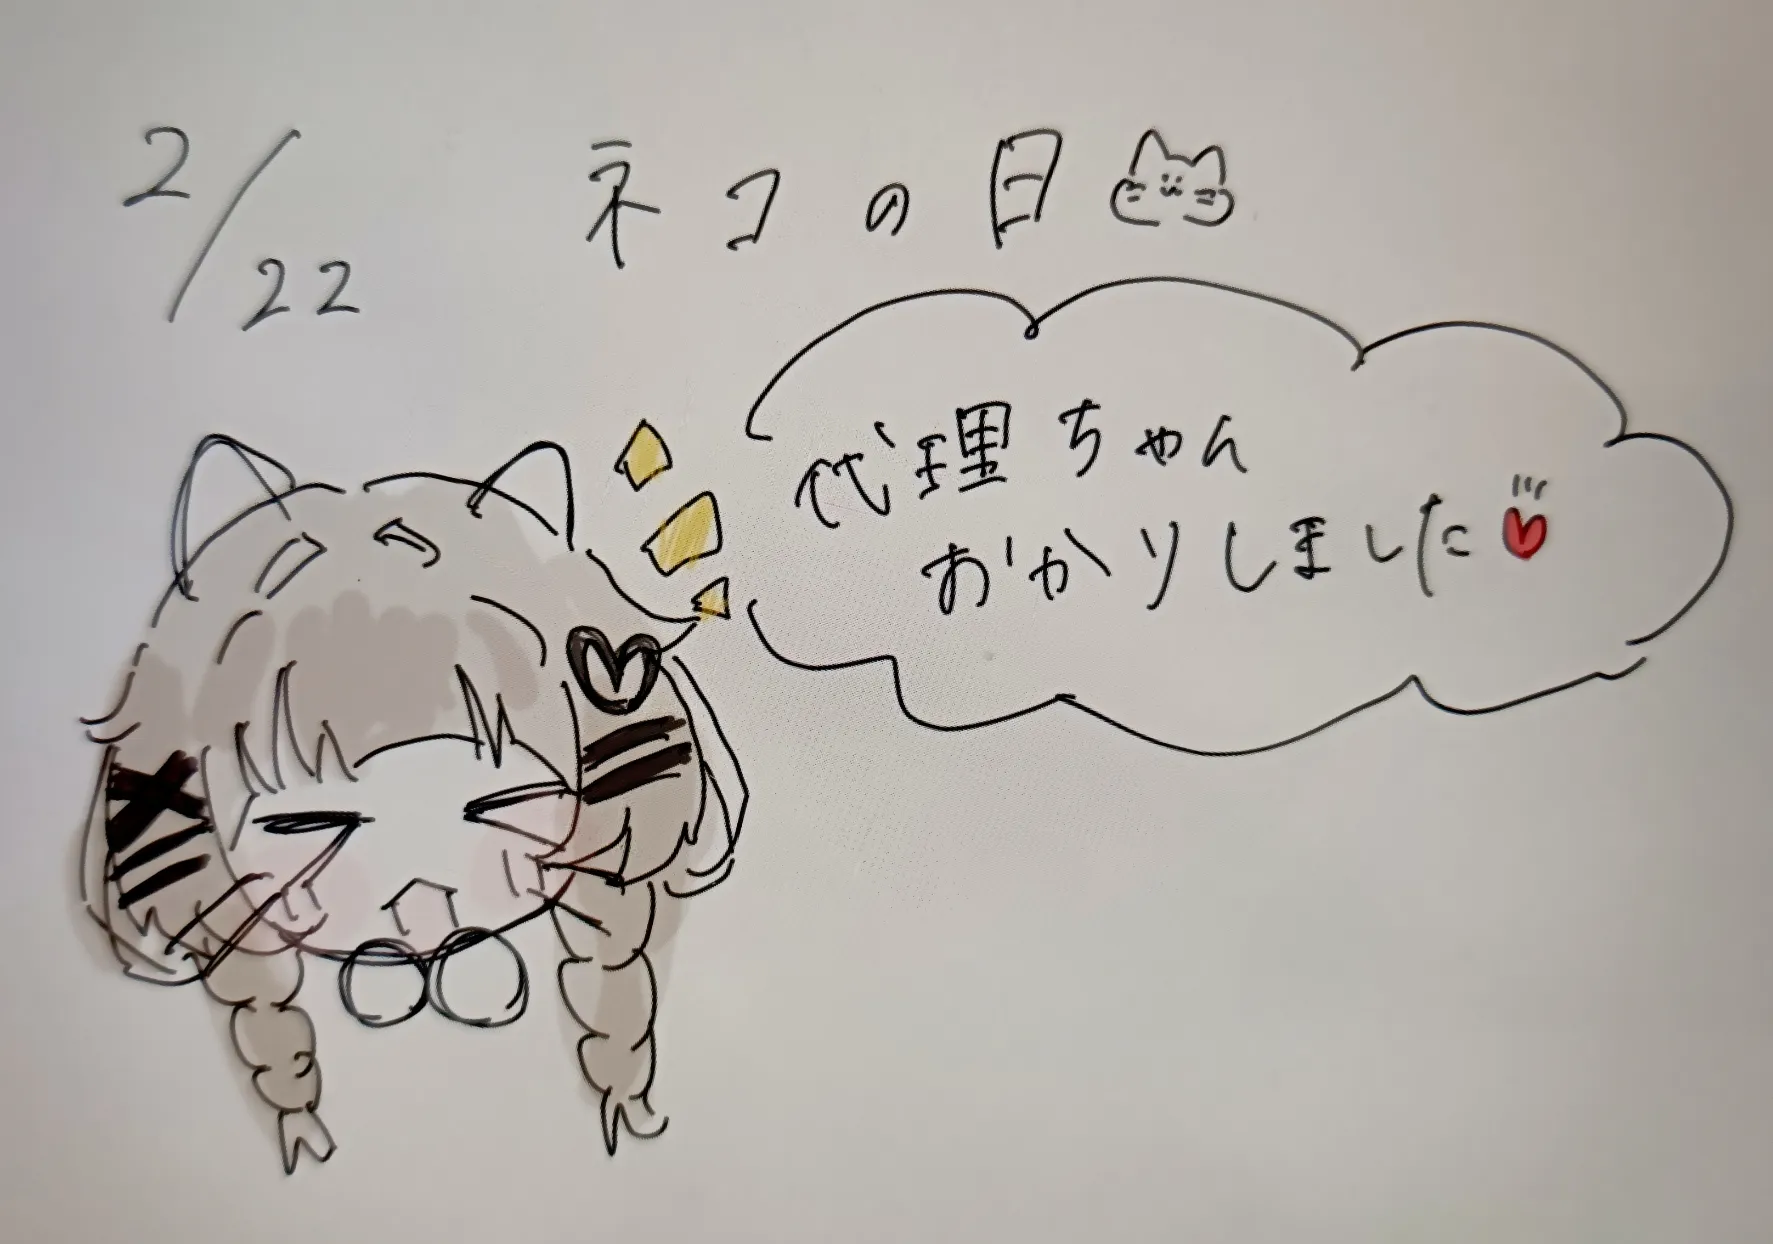 2/22 ネコの日
代理ちゃん
おかりしました